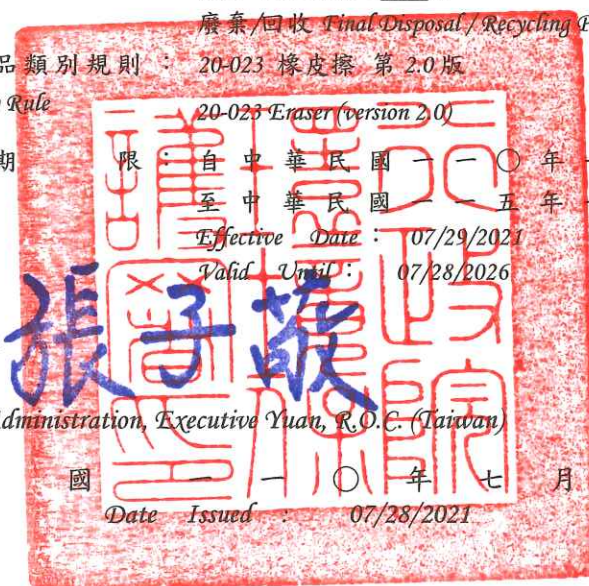 廢棄/回收 Final Disposal / Recycling P
品類別規則： 20-023 橡皮擦 第 2.0 版
Rule 20-023 Eraser (version 2.0)
期 限：自 中 華 民 國 一 一 〇 年
至 中 華 民 國 一 一 五 年
Effective Date： 07/29/2021
Valid Until： 07/28/2026
張子敬
dministration, Executive Yuan, R.O.C. (Taiwan)
國 一 一 〇 年 七 月
Date Issued ： 07/28/2021
行政院環境保護署印